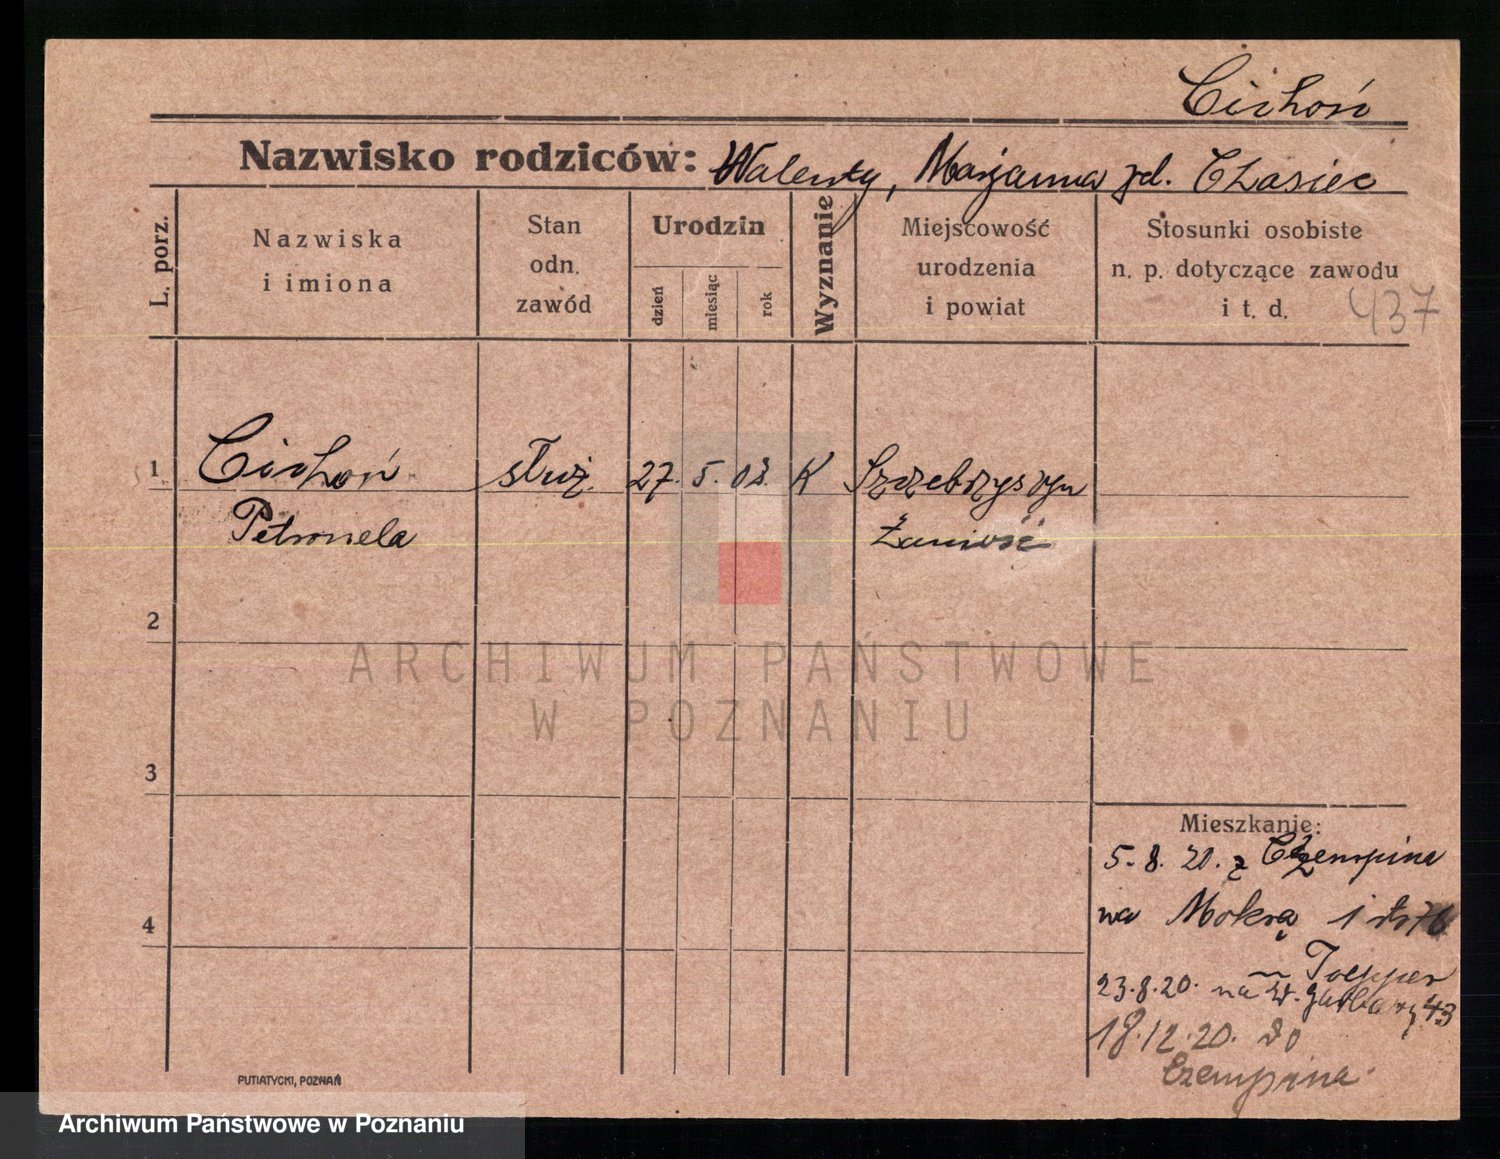 Cichoń
Nazwisko rodziców: Walenty, Marjanna zd. Czasiec
L. porz.
Nazwiska
i imiona
Stan
odn.
zawód
Urodzin
dzień
miesiąc
rok
Wyznanie
Miejscowość
urodzenia
i powiat
Stosunki osobiste
n. p. dotyczące zawodu
i t. d.
437
1
Cichoń służ. 27. 5. 02. K Szczebrzyszyn
Petronela
2
3
4
Mieszkanie:
5. 8. 20. z Czempina
na Mokrą 1
Toepper
23.8.20. na W. Garbary 43
18.12.20. do
Czempina
PUTIATYCKI, POZNAŃ
ARCHIWUM PAŃSTWOWE
W POZNANIU
Archiwum Państwowe w Poznaniu